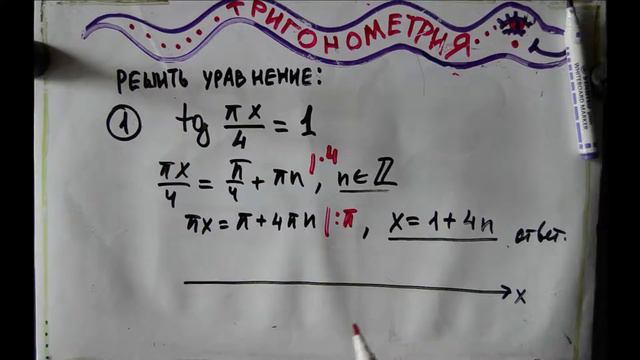 ТРИГОНОМЕТРИЯ
РЕШИТЬ УРАВНЕНИЕ:
① tg πx/4 = 1
πx/4 = π/4 + πn |·4, n∈ℤ
πx = π + 4πn |:π, x = 1 + 4n ответ.
x